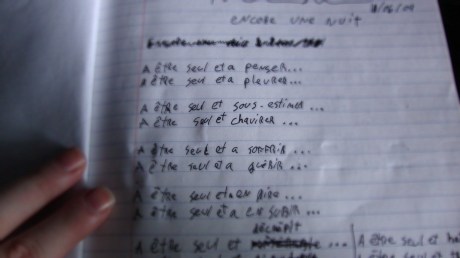 ENCORE UNE NUIT
A être seul et a penser...
A être seul et a pleurer...
A être seul et sous-estimer...
A être seul et chavirer...
A être seul et a souffrir...
A être seul et a guérir...
A être seul et a en rire...
A être seul et a en subir...
A être seul et décrépit
A être seul et
A être seul et